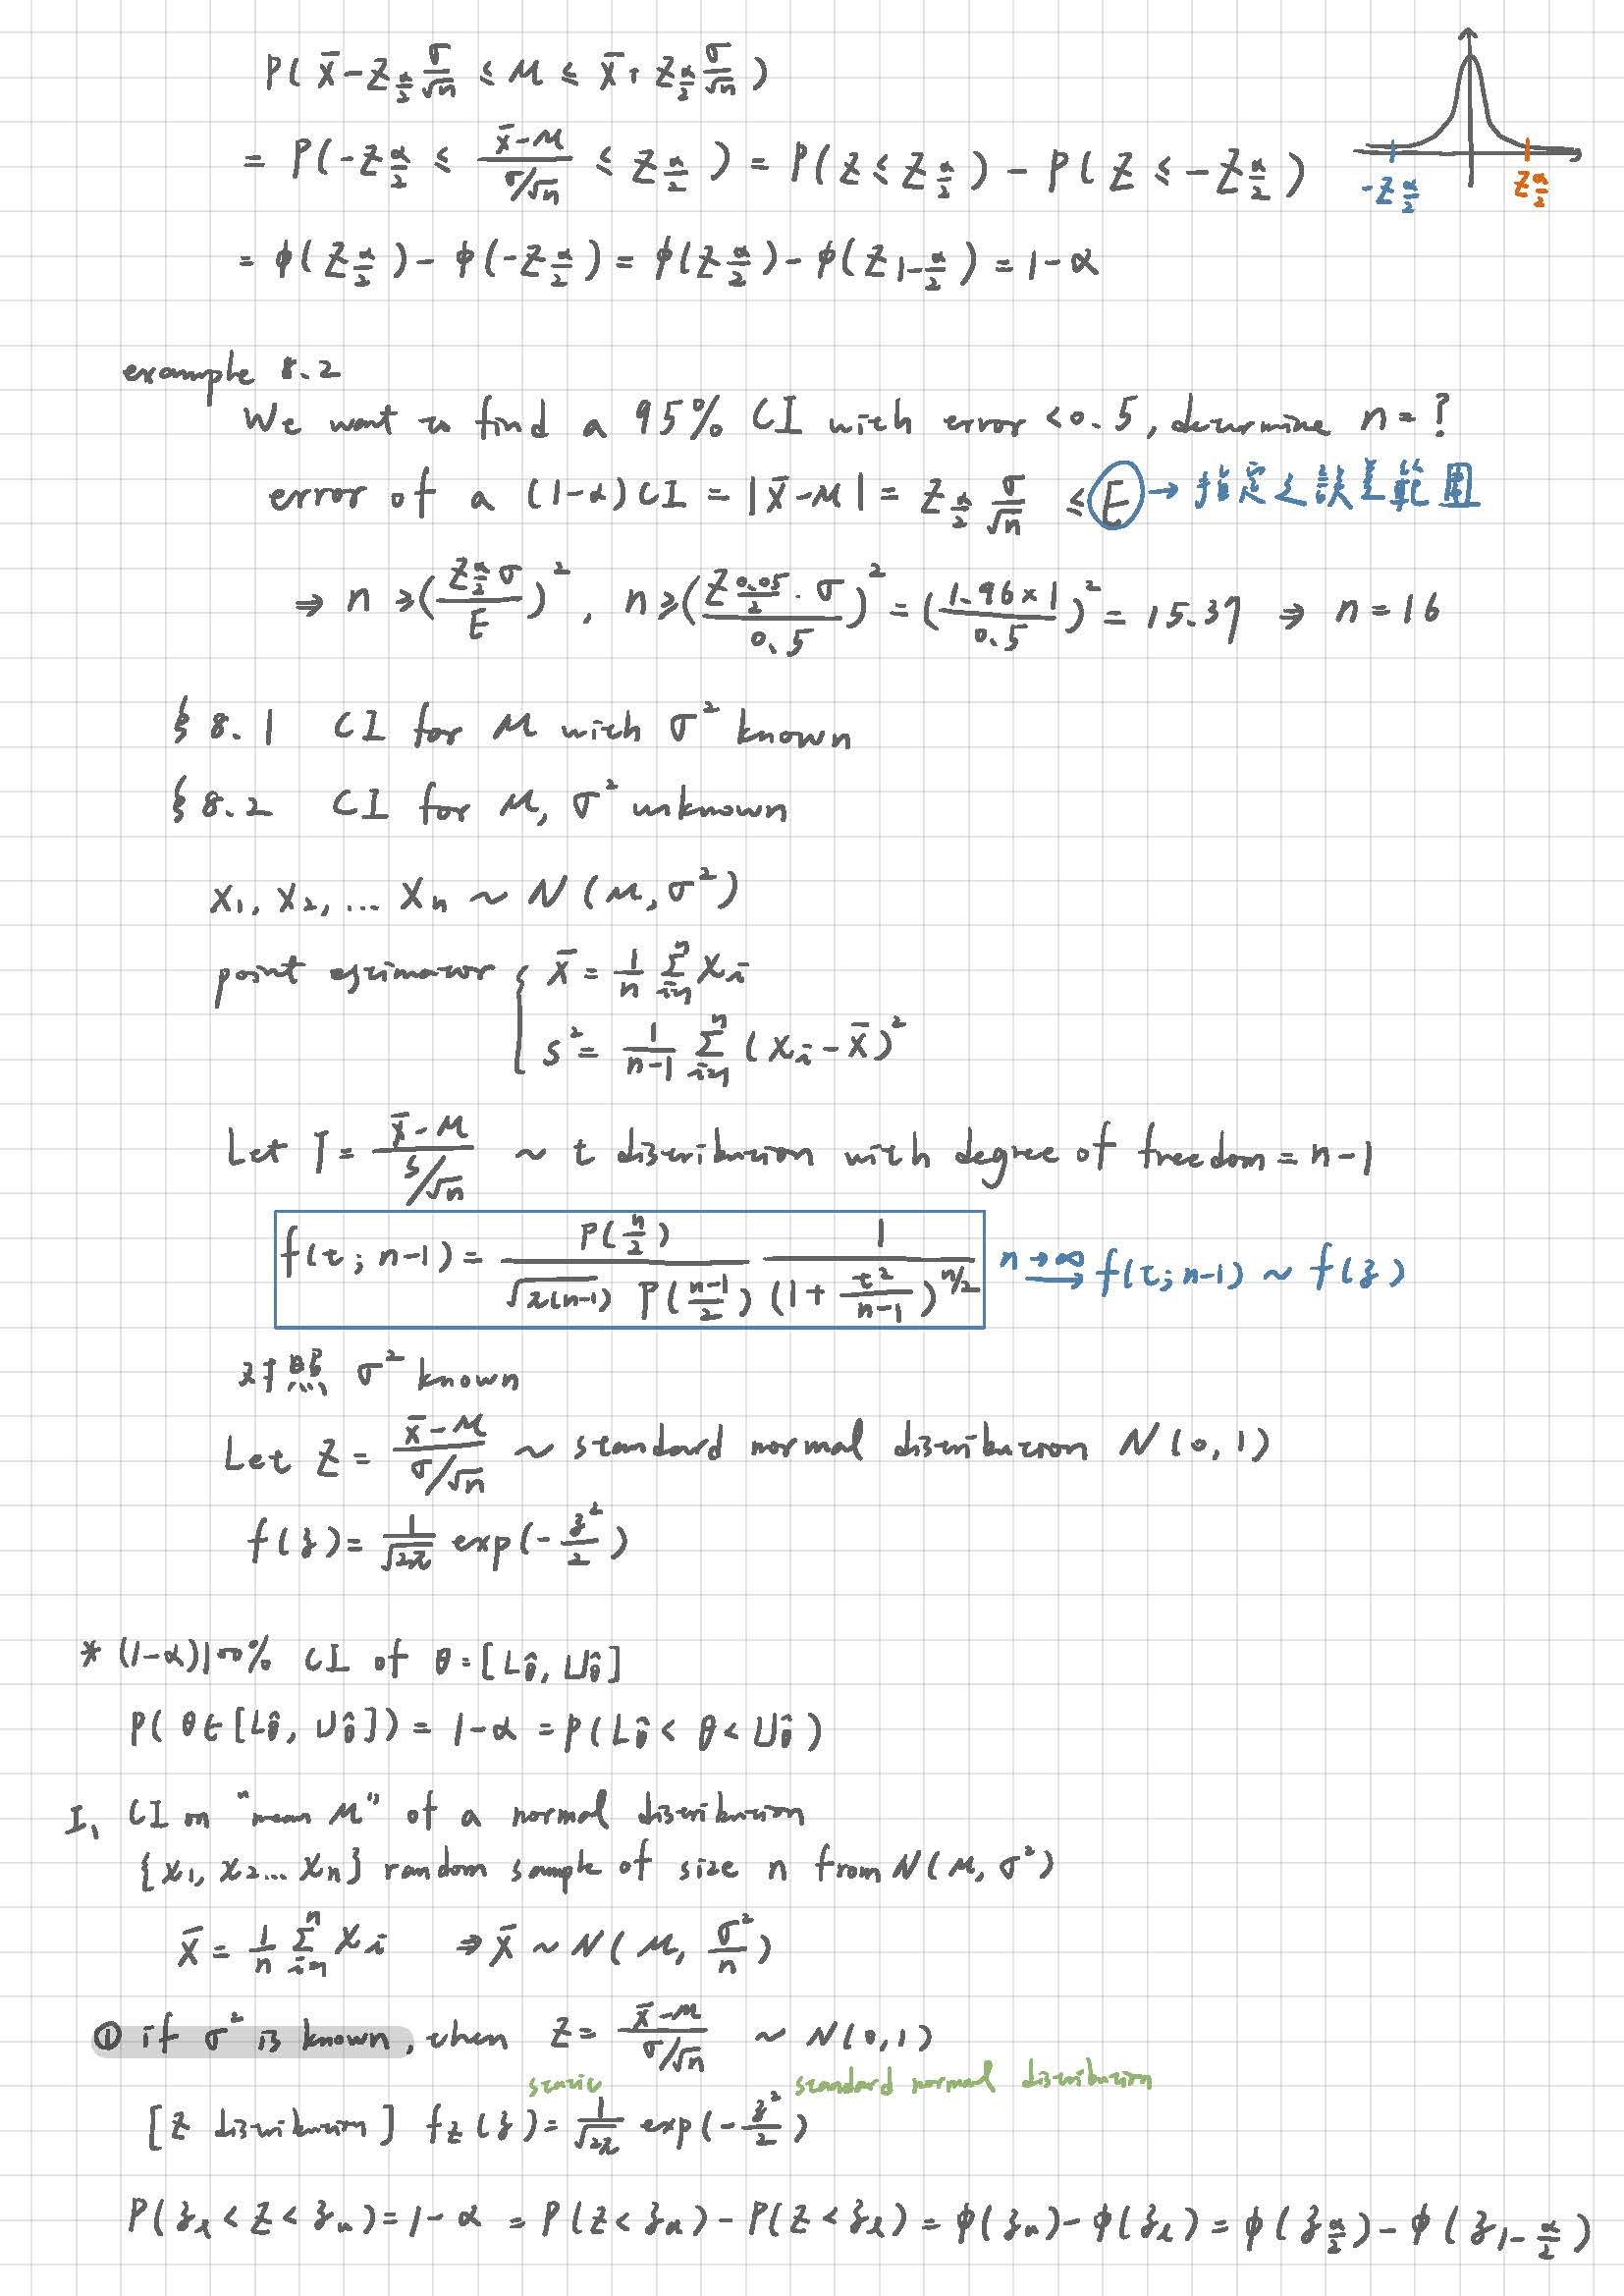 P( X̄ - Z_{α/2} σ/√n ≤ μ ≤ X̄ + Z_{α/2} σ/√n )
= P( -Z_{α/2} ≤ (x̄-μ)/(σ/√n) ≤ Z_{α/2} ) = P( Z ≤ Z_{α/2} ) - P( Z ≤ -Z_{α/2} )
-Z_{α/2} Z_{α/2}
= φ( Z_{α/2} ) - φ( -Z_{α/2} ) = φ( Z_{α/2} ) - φ( Z_{1-α/2} ) = 1-α
example 8.2
We want to find a 95% CI with error < 0.5, determine n = ?
error of a (1-α) CI = |x̄-μ| = Z_{α/2} σ/√n ≤ E → 指定之誤差範圍
⇒ n ≥ ( Z_{α/2} σ / E )², n ≥ ( Z_{0.05/2} · σ / 0.5 )² = ( 1.96 × 1 / 0.5 )² = 15.37 ⇒ n = 16
§ 8.1 CI for μ with σ² known
§ 8.2 CI for μ, σ² unknown
X₁, X₂, ... Xₙ ~ N ( μ, σ² )
point estimator { X̄ = 1/n Σ_{i=1}^{n} Xᵢ
S² = 1/(n-1) Σ_{i=1}^{n} ( Xᵢ - X̄ )²
Let T = (x̄-μ)/(s/√n) ~ t distribution with degree of freedom = n-1
f(t ; n-1) = Γ(n/2) / ( √(π(n-1)) Γ((n-1)/2) ) · 1 / ( 1 + t²/(n-1) )^{n/2} n→∞ f(t; n-1) ~ f(z)
对照 σ² known
Let Z = (x̄-μ)/(σ/√n) ~ standard normal distribution N ( 0, 1 )
f(z) = 1/√(2π) exp( - z²/2 )
* (1-α)100% CI of θ = [ L_θ̂, U_θ̂ ]
P( θ ∈ [ L_θ̂, U_θ̂ ] ) = 1-α = P( L_θ̂ < θ < U_θ̂ )
I、 CI on "mean μ" of a normal distribution
{ X₁, X₂ ... Xₙ } random sample of size n from N ( μ, σ² )
X̄ = 1/n Σ_{i=1}^{n} Xᵢ ⇒ X̄ ~ N ( μ, σ²/n )
① if σ² is known, then Z = (x̄-μ)/(σ/√n) ~ N ( 0, 1 )
static standard normal distribution
[ Z distribution ] f_z(z) = 1/√(2π) exp( - z²/2 )
P( z_l < Z < z_u ) = 1-α = P( Z < z_u ) - P( Z < z_l ) = φ( z_u ) - φ( z_l ) = φ( z_{α/2} ) - φ( z_{1-α/2} )